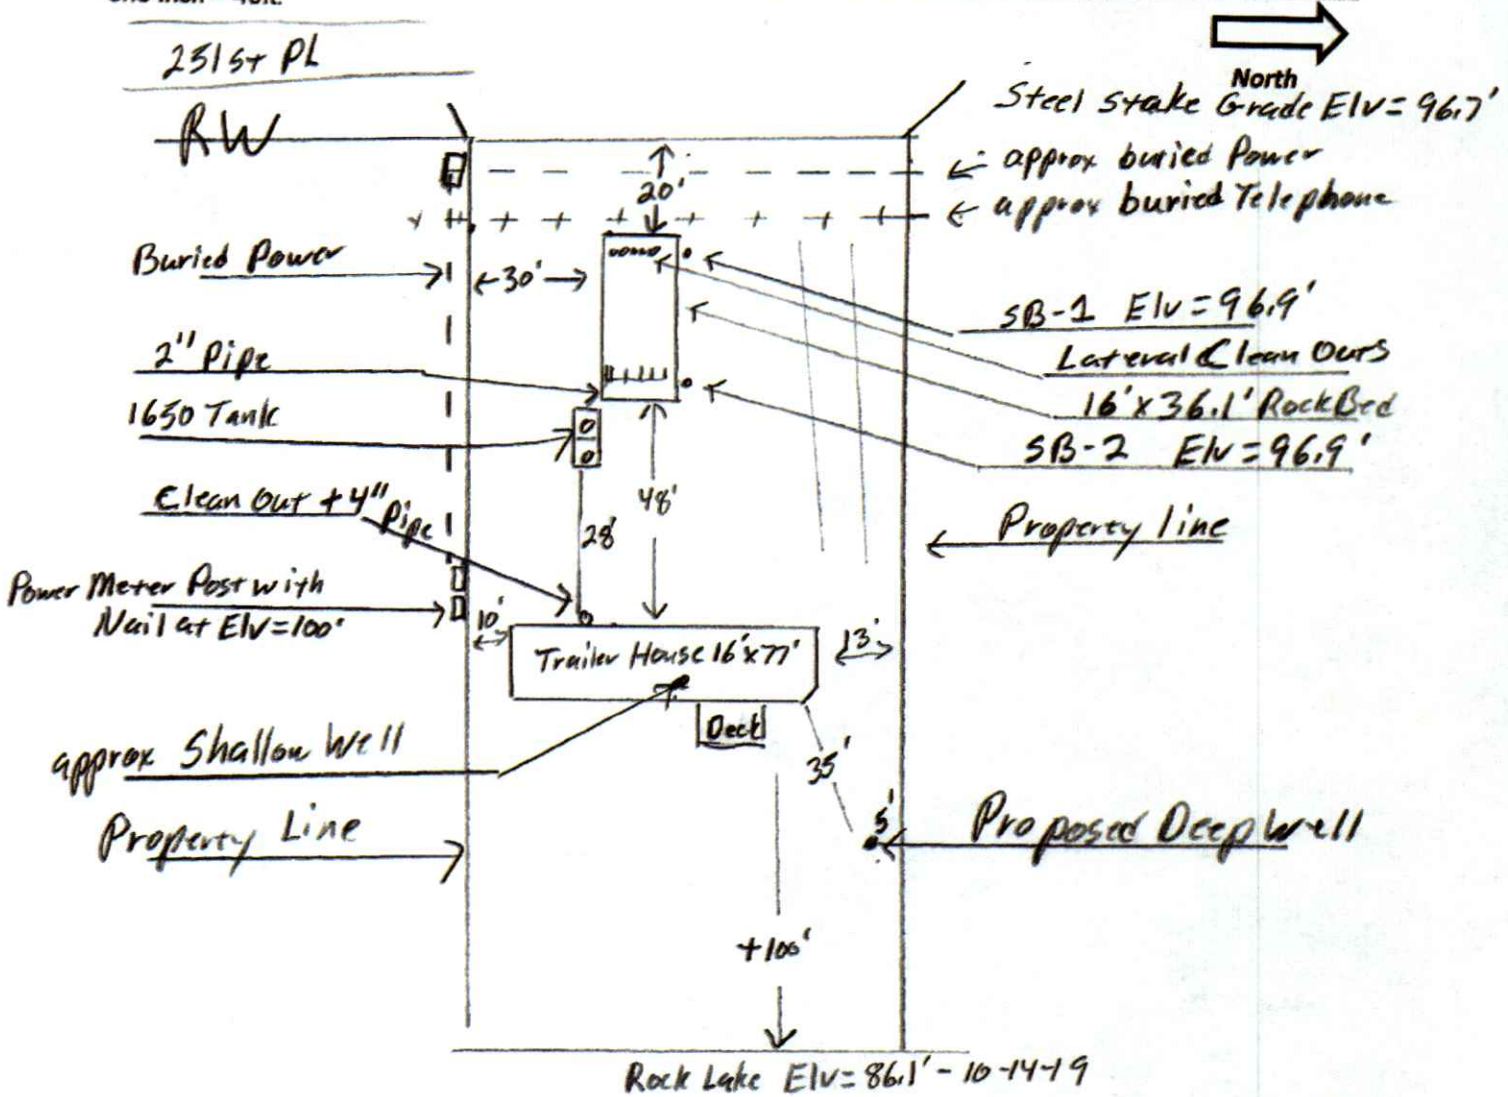 231st PL
North
RW
Steel Stake Grade Elv = 96.7'
approx buried Power
20'
approx buried Telephone
Buried Power
30'
SB-1 Elv = 96.9'
2" Pipe
Lateral Clean Outs
16' x 36.1' Rock Bed
1650 Tank
SB-2 Elv = 96.9'
Clean Out + 4" Pipe
48'
28'
Property line
Power Meter Post with
Nail at Elv = 100'
10'
Trailer House 16' x 77'
13'
Deck
approx Shallow Well
35'
Property Line
5'
Proposed Deep Well
+100'
Rock Lake Elv = 86.1' - 10-14-19